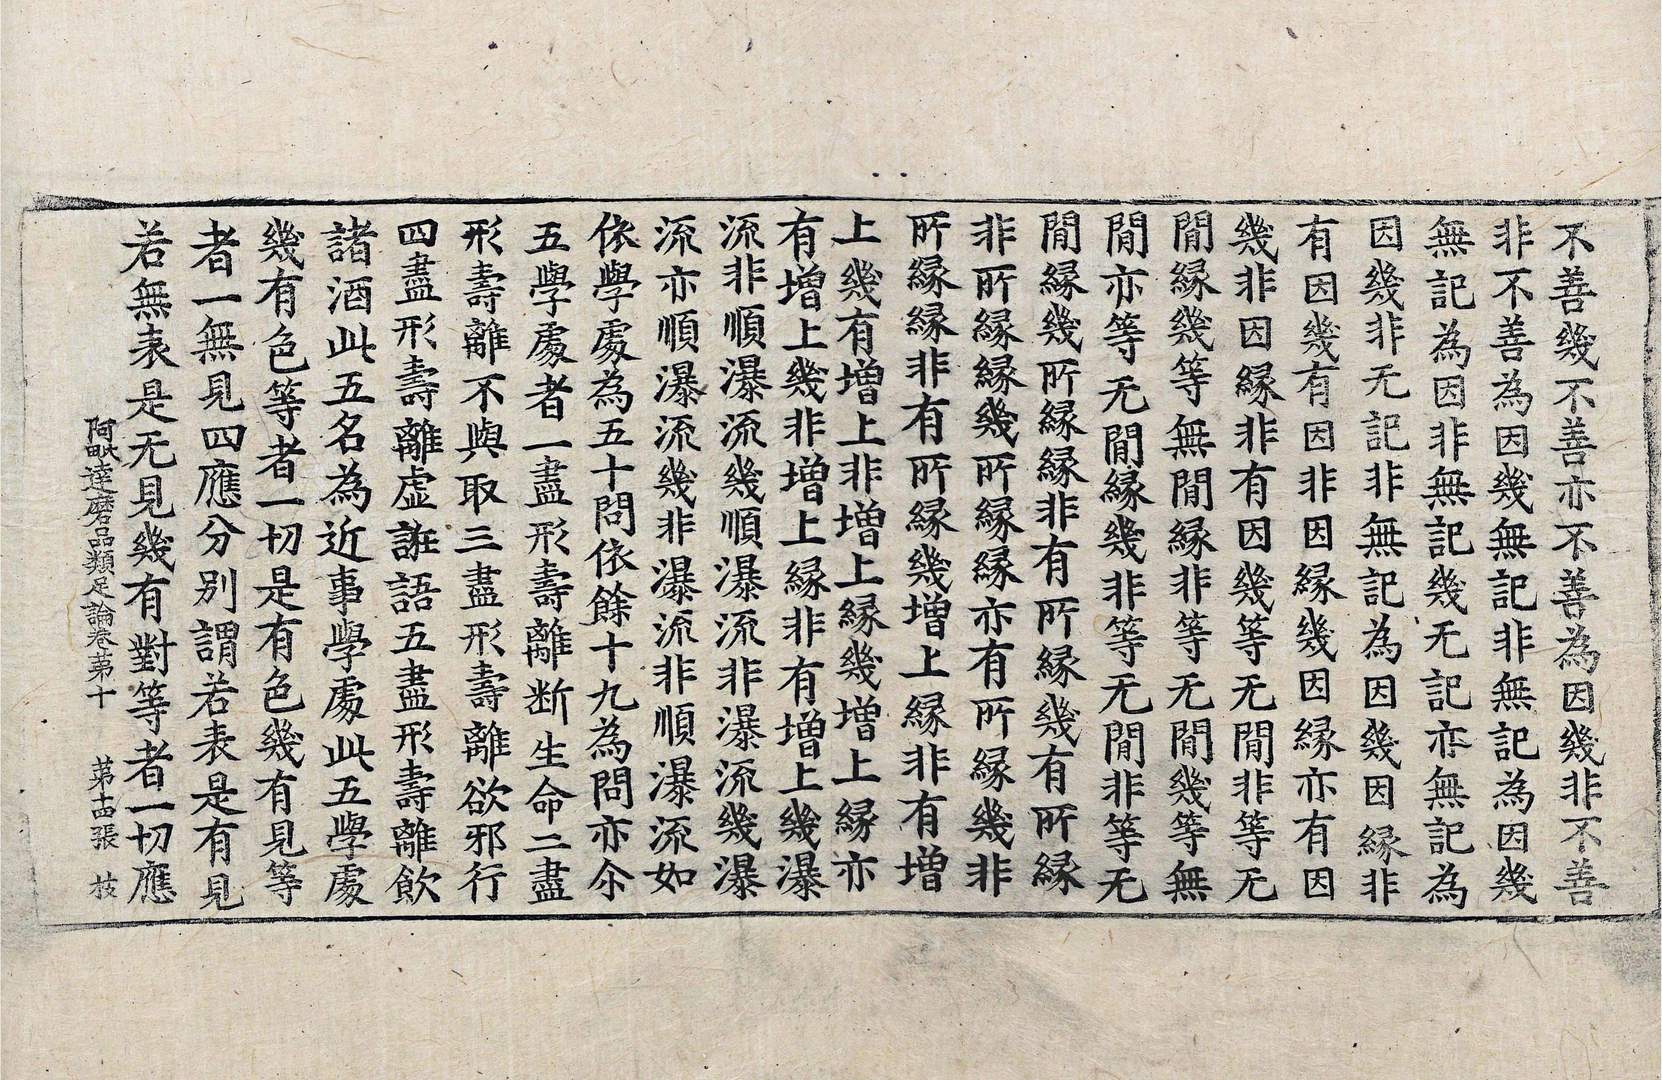 不善幾不善亦不善為因幾非不善
非不善為因幾無記非無記為因幾
無記為因非無記幾无記亦無記為
因幾非无記非無記為因幾因緣非
有因幾有因非因緣幾因緣亦有因
幾非因緣非有因幾等无閒非等无
閒緣幾等無閒緣非等无閒幾等無
閒亦等无閒緣幾非等无閒非等无
閒緣幾所緣非有所緣幾有所緣
非所緣緣幾所緣緣亦有所緣幾非
所緣緣非有所緣幾增上緣非有增
上幾有增上非增上緣幾增上緣亦
有增上幾非增上緣非有增上幾瀑
流非順瀑流幾順瀑流非瀑流幾瀑
流亦順瀑流幾非瀑流非順瀑流如
依學處為五十問依餘十九為問亦尒
五學處者一盡形壽離断生命二盡
形壽離不與取三盡形壽離欲邪行
四盡形壽離虛誑語五盡形壽離飲
諸酒此五名為近事學處此五學處
幾有色等者一切是有色幾有見等
者一無見四應分別謂若表是有見
若無表是无見幾有對等者一切應
阿毗達磨品類足論卷第十 第十四張 枝